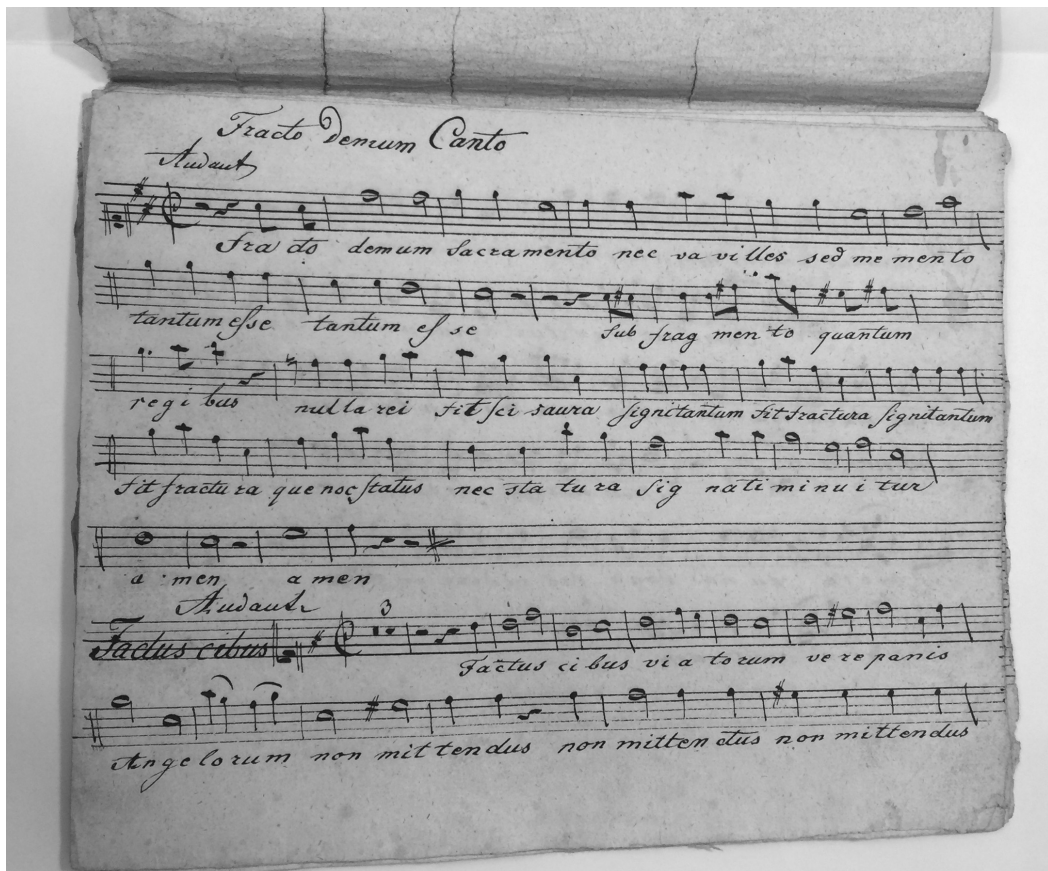 Fracto Demum Canto
Andant
Fra do demum Sacramento nec va villes sed me mento
tantum esse tantum es se sub frag men to quantum
regi bus nulla rei fit sci saura signitantum fit fractura signitantum
fit fractura que noc status nec sta tu ra sig nati mi nu i tur
a men a men
Andant
Factus cibus 3
Factus ci bus vi a to rum ve re panis
Ange lo rum non mit tendus non mitten dus non mittendus